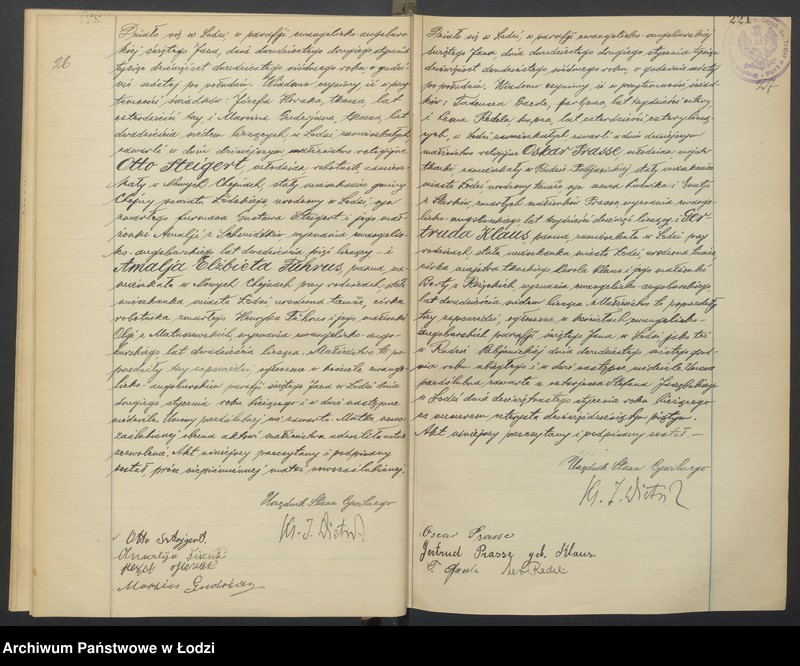 26
Działo się w Łodzi, w parafji ewangelicko-augsbur-
skiej świętego Jana, dnia dwudziestego drugiego stycznia
tysiąc dziewięćset dwudziestego siódmego roku o godzi-
nie szóstej po południu. Wiadomo czynimy, iż w przy-
tomności świadków: Józefa Horaka, tkacza, lat
czterdzieści trzy i Marcina Gudrjana, tkacza, lat
dwadzieścia siedem liczących, w Łodzi zamieszkałych,
zawarli w dniu dzisiejszym małżeństwo religijne
Otto Steigert, młodzian, robotnik, zamiesz-
kały w Nowych Chojnach, stały mieszkaniec gminy
Chojny powiatu Łódzkiego urodzony w Łodzi, syn
zmarłego furmana Gustawa Steigert i jego mał-
żonki Amalji z wyznania ewangelic-
ko-augsburskiego lat dwadzieścia pięć liczący — i
Amalja Elżbieta Fuhrus, panna, za-
mieszkała w Nowych Chojnach przy rodzicach, stała
mieszkanka miasta Łodzi urodzona tamże, córka
robotnika zmarłego Henryka Fuhrus i jego małżonki
Olgi z Matuszewskich, wyznania ewangelicko-augs-
burskiego lat dwadzieścia licząca. Małżeństwo to po-
przedziły trzy zapowiedzi, ogłoszone w kościele ewange-
licko-augsburskim parafji świętego Jana w Łodzi dnia
drugiego stycznia roku bieżącego i w dwie następne
niedziele. Umowy przedślubnej nie zawarto. Matka nowo-
zaślubionej obecna aktowi małżeństwa udzieliła ustne
zezwolenie. Akt niniejszy przeczytany i podpisany
został, prócz niepiśmiennej matki nowozaślubionej.
Urzędnik Stanu Cywilnego
Ks. J. Dietrich
Otto Sztajgert
Józef Horak
Marcin Gudrian
221
27
Działo się w Łodzi, w parafji ewangelicko-augsburskiej
świętego Jana dnia dwudziestego drugiego stycznia tysiąc
dziewięćset dwudziestego siódmego roku, o godzinie szóstej
po południu. Wiadomo czynimy, iż w przytomności świad-
ków: Tadeusza lat trzydzieści cztery
i Leona Redela kupca, lat czterdzieści cztery liczą-
cych, w Łodzi zamieszkałych zawarli w dniu dzisiejszym
małżeństwo religijne Oskar Prasse młodzian, majster
tkacki zamieszkały w Rudzie Pabjanickiej stały mieszkaniec
miasta Łodzi urodzony tamże syn Ludwika i Emilji
z zmarłych małżonków Prasse wyznania ewange-
licko-augsburskiego lat trzydzieści dziewięć liczący i Ger-
truda Klaus, panna, zamieszkała w Łodzi przy
rodzicach, stała mieszkanka miasta Łodzi, urodzona tamże,
córka majstra tkackiego Karola Klaus i jego małżonki
Berty z wyznania ewangelicko-augsburskiego
lat dwadzieścia siedem licząca. Małżeństwo to poprzedziły
trzy zapowiedzi, ogłoszone w kościołach ewangelicko-
augsburskich parafji świętego Jana w Łodzi, jako też
w Rudzie Pabjanickiej dnia dwudziestego szóstego grud-
nia roku ubiegłego i w dwie następne niedziele. Umowa
przedślubna zawarta u notarjusza Stefana
w Łodzi dnia dziewiętnastego stycznia roku bieżącego
za numerem
Akt niniejszy przeczytany i podpisany został. —
Urzędnik Stanu Cywilnego
Ks. J. Dietrich
Oscar Prasse
Gertrud Prasse geb. Klaus.
Leo Redel
Archiwum Państwowe w Łodzi